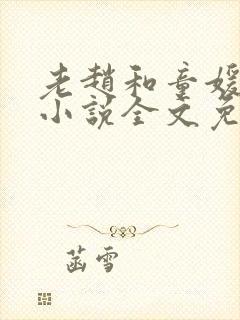 老趙和童媛
小說全文免
菡雪